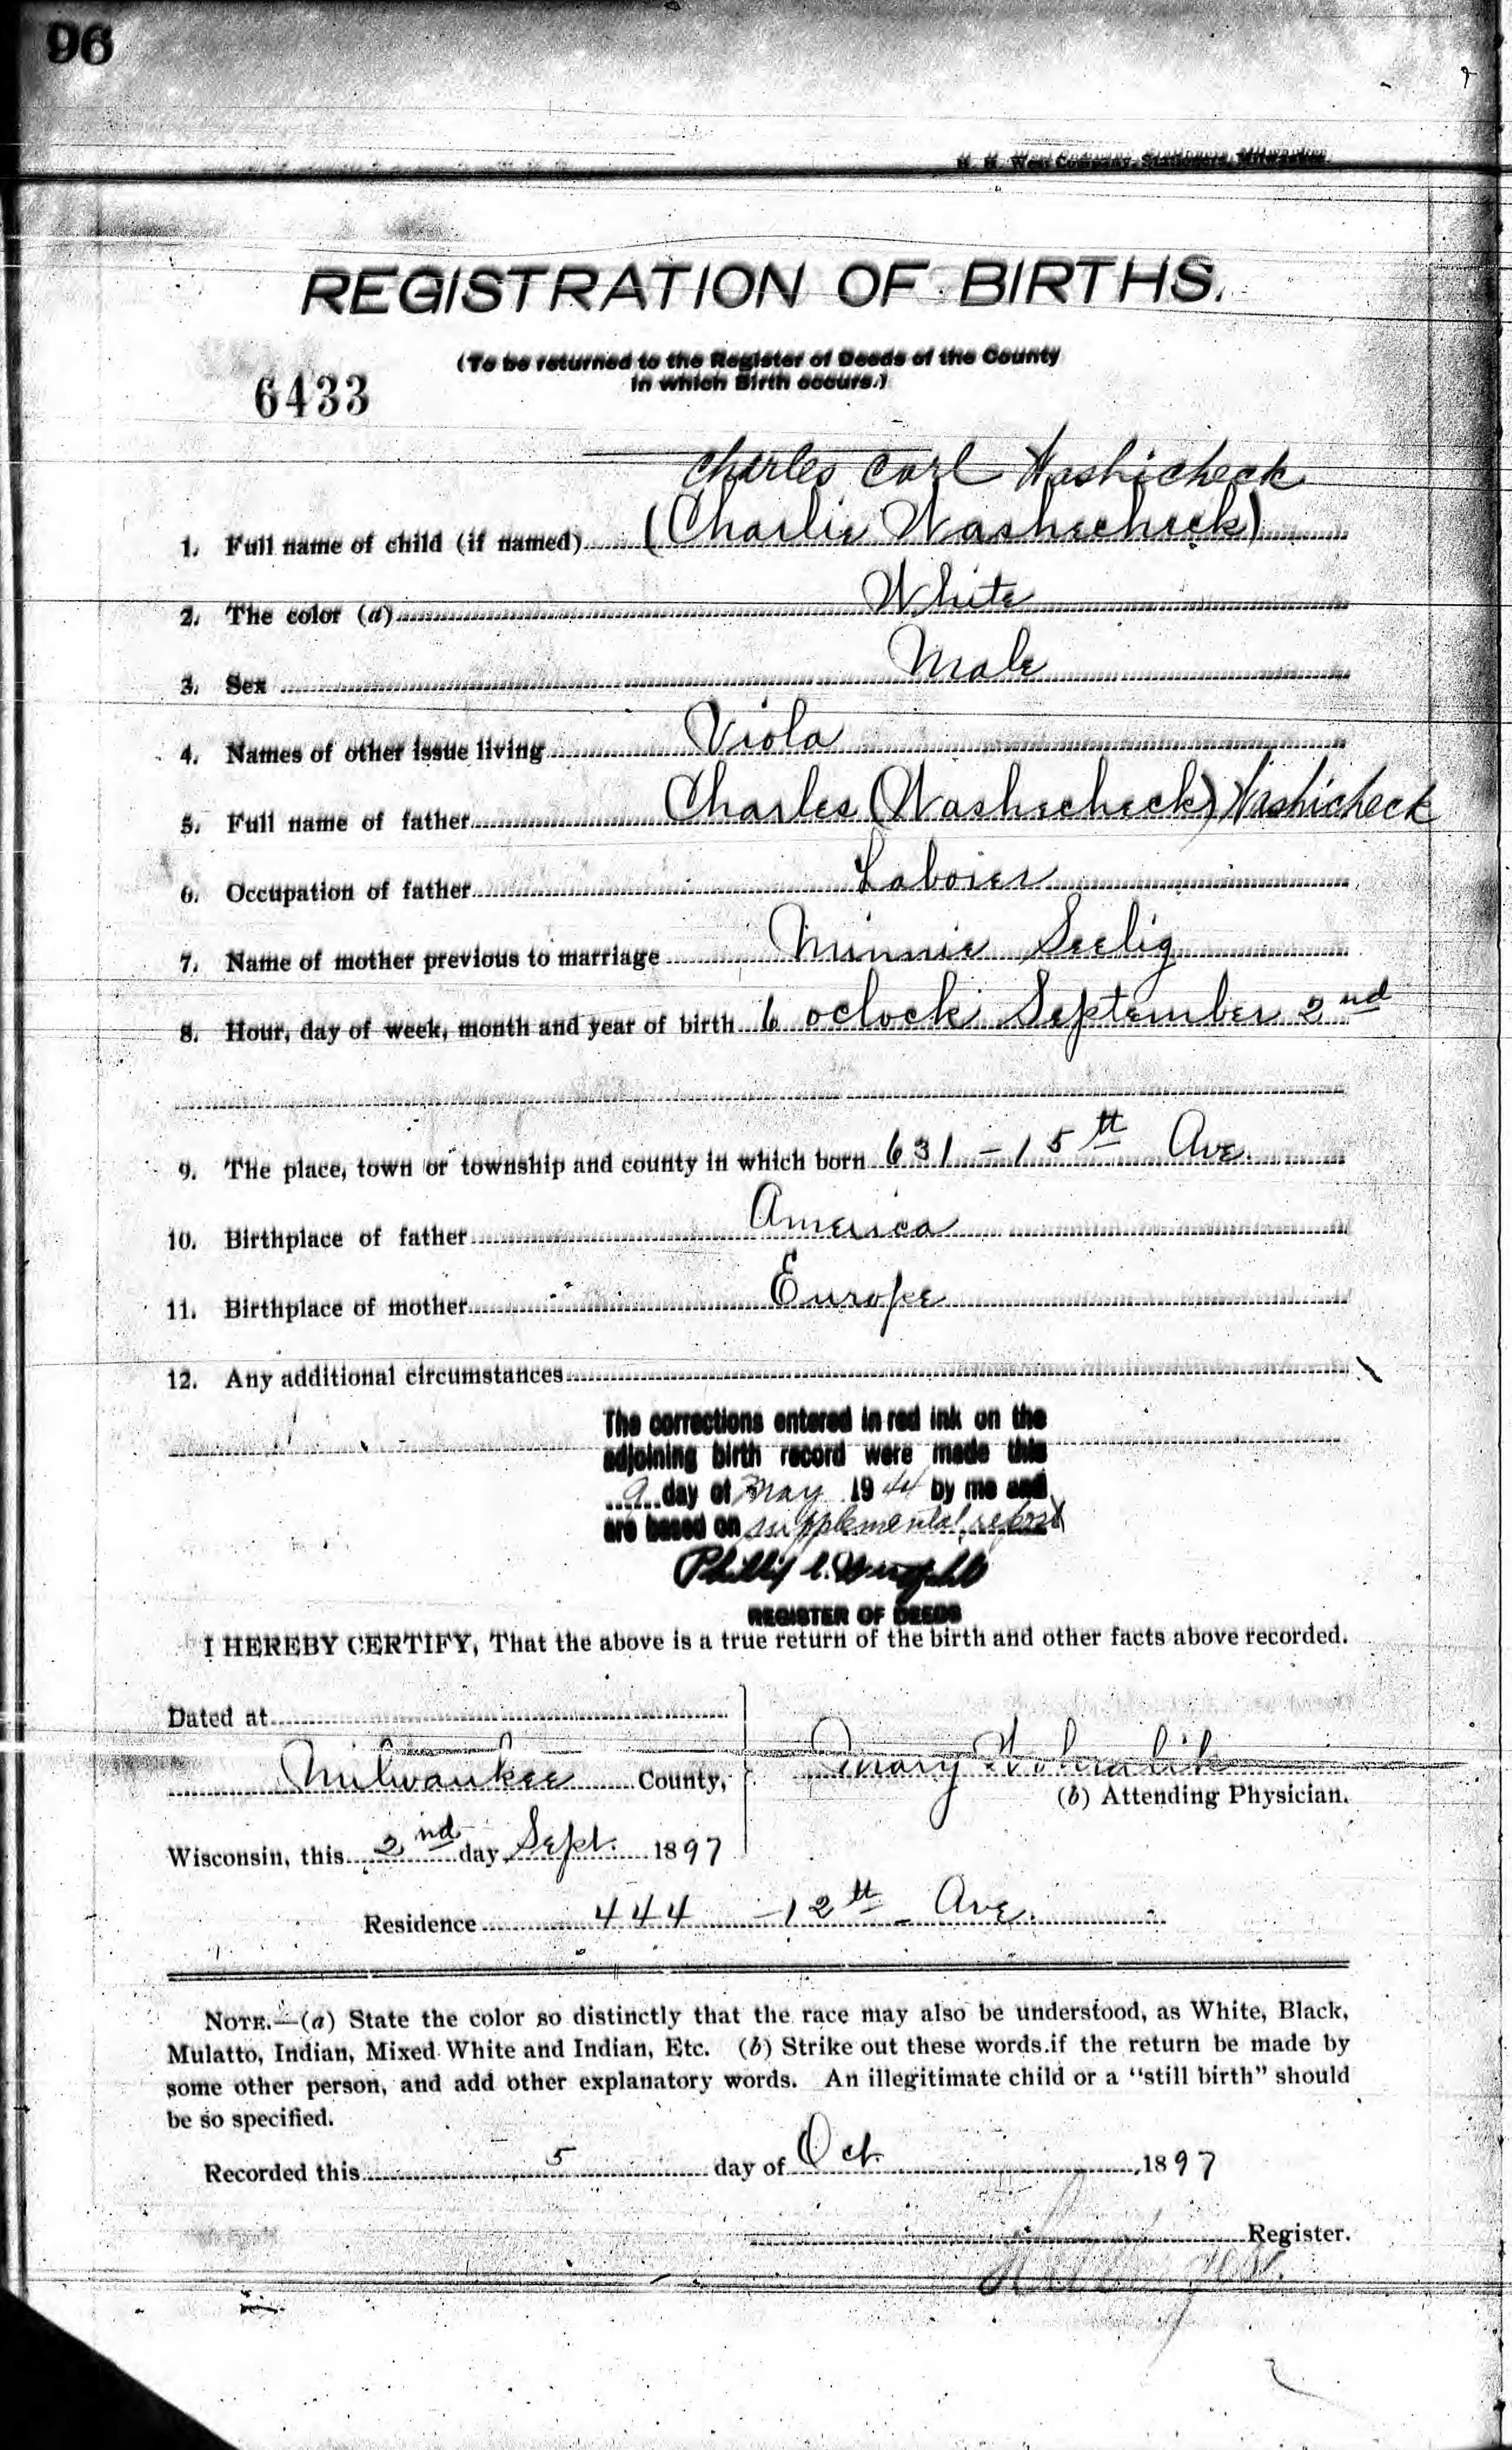 96
H. H. West Company, Stationers, Milwaukee.
REGISTRATION OF BIRTHS.
(To be returned to the Register of Deeds of the County
in which Birth occurs.)
6433
Charles Carl Washicheck
1. Full name of child (if named) (Charlie Washecheck)
2. The color (a) White
3. Sex Male
4. Names of other issue living Viola
5. Full name of father Charles (Washecheck) Washicheck
6. Occupation of father Laborer
7. Name of mother previous to marriage Minnie Seelig
8. Hour, day of week, month and year of birth 6 oclock September 2nd
9. The place, town or township and county in which born 631 - 15th Ave.
10. Birthplace of father America
11. Birthplace of mother Europe
12. Any additional circumstances
The corrections entered in red ink on the
adjoining birth record were made this
9 day of May 1944 by me and
are based on supplemental report
REGISTER OF DEEDS
I HEREBY CERTIFY, That the above is a true return of the birth and other facts above recorded.
Dated at
Milwaukee County,
Mary
(b) Attending Physician.
Wisconsin, this 2nd day Sept. 1897
Residence 444 - 12th Ave.
NOTE.—(a) State the color so distinctly that the race may also be understood, as White, Black,
Mulatto, Indian, Mixed White and Indian, Etc. (b) Strike out these words if the return be made by
some other person, and add other explanatory words. An illegitimate child or a "still birth" should
be so specified.
Recorded this 5 day of Oct. 1897
Register.